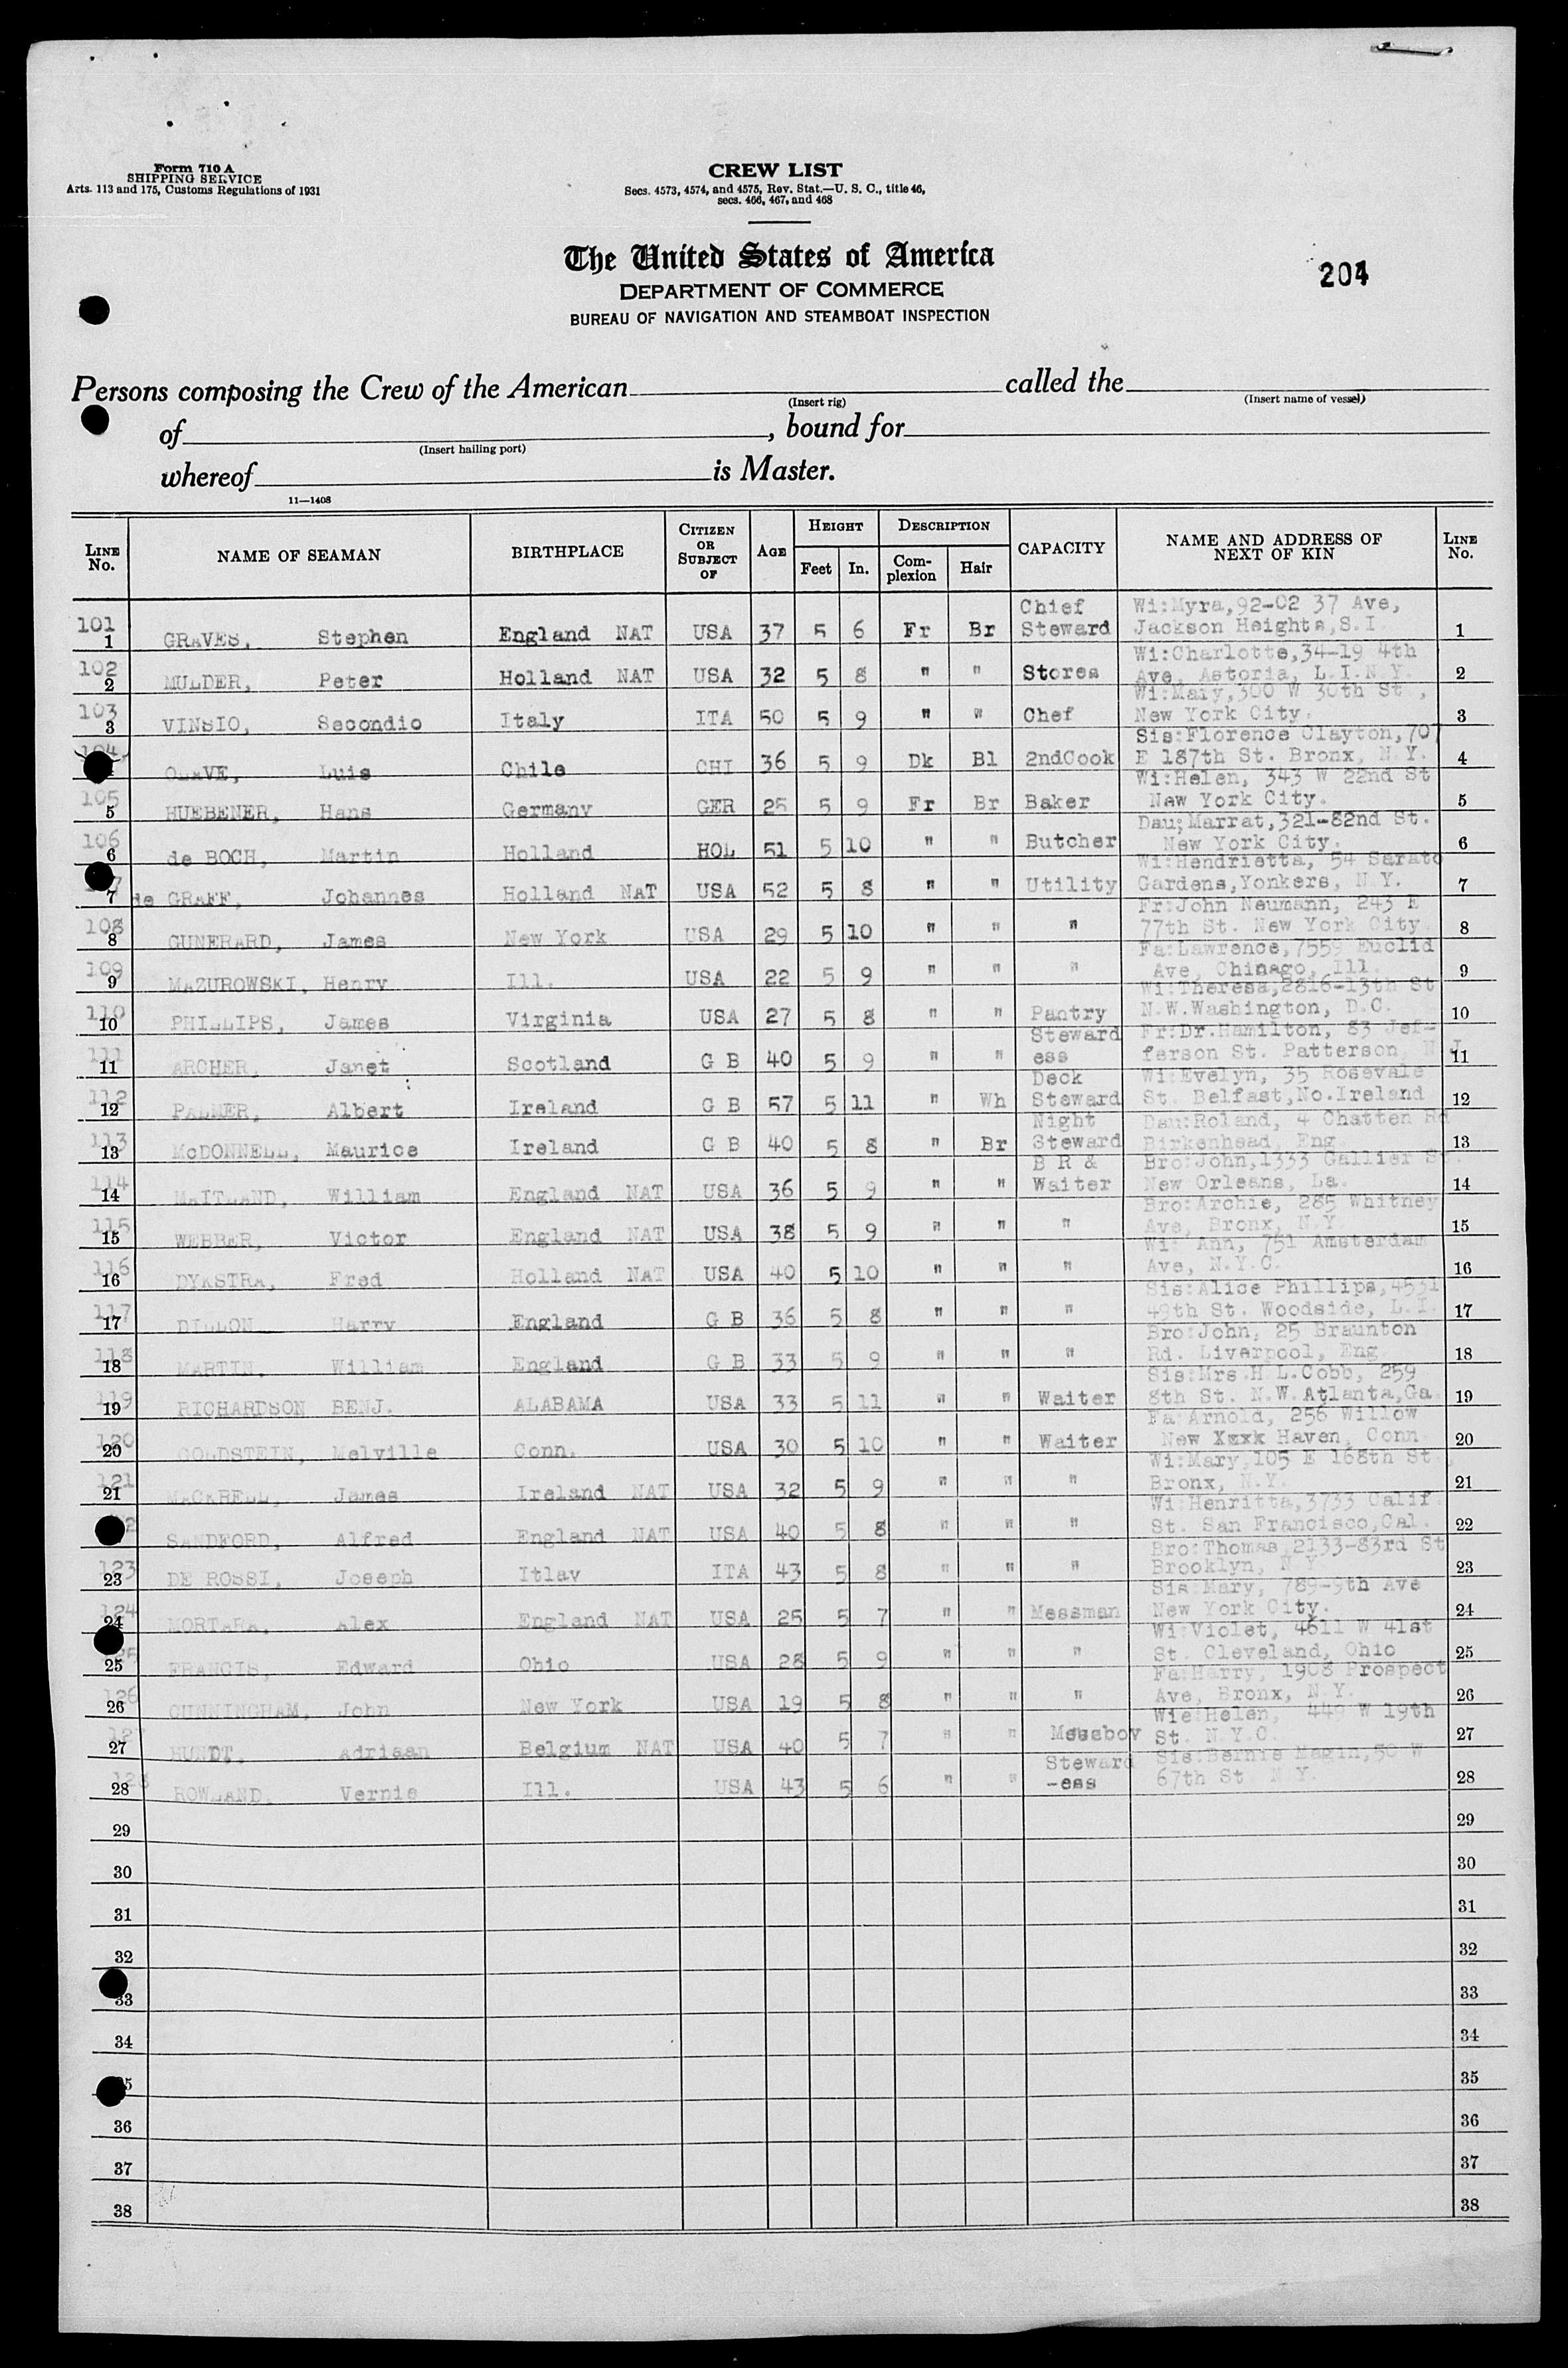 Form 710 A
SHIPPING SERVICE
Arts. 113 and 175, Customs Regulations of 1931
CREW LIST
Secs. 4573, 4574, and 4575, Rev. Stat.—U. S. C., title 46,
secs. 466, 467, and 468
The United States of America
DEPARTMENT OF COMMERCE
BUREAU OF NAVIGATION AND STEAMBOAT INSPECTION
204
Persons composing the Crew of the American called the
(Insert rig) (Insert name of vessel)
of , bound for
(Insert hailing port)
whereof is Master.
11—1408
LINE No. NAME OF SEAMAN BIRTHPLACE CITIZEN OR SUBJECT OF AGE HEIGHT Feet In. DESCRIPTION Complexion Hair CAPACITY NAME AND ADDRESS OF NEXT OF KIN LINE No.
101 1 GRAVES, Stephen England NAT USA 37 5 6 Fr Br Chief Steward Wi:Myra,92-02 37 Ave, Jackson Heights,S.I. 1
102 2 MULDER, Peter Holland NAT USA 32 5 8 " " Stores Wi:Charlotte,34-19 4th Ave, Astoria, L.I.N.Y. 2
103 3 VINSIO, Secondio Italy ITA 50 5 9 " " Chef Wi:Mary,300 W 30th St , New York City. 3
104 OLAVE, Luis Chile CHI 36 5 9 Dk Bl 2ndCook Sis:Florence Clayton,707 E 187th St. Bronx, N.Y. 4
105 5 HUEBENER, Hans Germany GER 25 5 9 Fr Br Baker Wi:Helen, 343 W 22nd St New York City. 5
106 6 de BOCH, Martin Holland HOL 51 5 10 " " Butcher Dau;Marrat,321-82nd St. New York City. 6
7 7 de GRAFF, Johannes Holland NAT USA 52 5 8 " " Utility Wi:Hendrietta, 54 Sarato Gardens,Yonkers, N.Y. 7
108 8 GUNERARD, James New York USA 29 5 10 " " " Fr:John Neumann, 243 E 77th St. New York City 8
109 9 MAZUROWSKI, Henry Ill. USA 22 5 9 " " " Fa:Lawrence,7559 Euclid Ave, Chinago, Ill. 9
110 10 PHILLIPS, James Virginia USA 27 5 8 " " Pantry Wi:Theresa,2816-13th St N.W.Washington, D.C. 10
111 11 ARCHER, Janet Scotland G B 40 5 9 " " Steward ess Fr:Dr.Hamilton, 83 Jef- ferson St. Patterson, N J 11
112 12 PALMER, Albert Ireland G B 57 5 11 " Wh Deck Steward Wi:Evelyn, 35 Rosevale St. Belfast,No.Ireland 12
113 13 McDONNELL, Maurice Ireland G B 40 5 8 " Br Night Steward Dau:Roland, 4 Chatten Rd Birkenhead, Eng. 13
114 14 MAITLAND, William England NAT USA 36 5 9 " " B R & Waiter Bro:John,1333 Gallier St. New Orleans, La. 14
115 15 WEBBER, Victor England NAT USA 38 5 9 " " " Bro:Archie, 285 Whitney Ave, Bronx, N.Y. 15
116 16 DYKSTRA, Fred Holland NAT USA 40 5 10 " " " Wi: Ann, 751 Amsterdam Ave, N.Y.C. 16
117 17 DILLON Harry England G B 36 5 8 " " " Sis:Alice Phillips,4531 49th St. Woodside, L.I. 17
118 18 MARTIN, William England G B 33 5 9 " " " Bro:John, 25 Braunton Rd. Liverpool, Eng 18
119 19 RICHARDSON BENJ. ALABAMA USA 33 5 11 " " Waiter Sis:Mrs.H.L.Cobb, 259 8th St. N.W.Atlanta,Ga. 19
120 20 GOLDSTEIN, Melville Conn. USA 30 5 10 " " Waiter Fa:Arnold, 256 Willow New Xxxk Haven, Conn 20
121 21 MACKRELL, James Ireland NAT USA 32 5 9 " " " Wi:Mary,105 E 168th St, Bronx, N.Y. 21
2 SANDFORD, Alfred England NAT USA 40 5 8 " " " Wi:Henritta,3733 Calif. St. San Francisco,Cal. 22
123 23 DE ROSSI, Joseph Itlay ITA 43 5 8 " " " Bro:Thomas,2133-83rd St Brooklyn, N Y 23
124 24 MORTARA, Alex England NAT USA 25 5 7 " " Messman Sis:Mary, 789-9th Ave New York City. 24
25 25 FRANCIS, Edward Ohio USA 28 5 9 " " " Wi:Violet, 4611 W 41st St. Cleveland, Ohio 25
126 26 CUNNINGHAM, John New York USA 19 5 8 " " " Fa:Harry, 1908 Prospect Ave, Bronx, N.Y. 26
127 27 HUNDT, Adrisan Belgium NAT USA 40 5 7 " " Messboy Wie:Helen, 449 W 19th St. N.Y.C. 27
128 28 ROWLAND, Vernie Ill. USA 43 5 6 " " Steward -ess Sis:Bernie Magin,50 W 67th St N.Y. 28
29 29
30 30
31 31
32 32
33 33
34 34
5 35
36 36
37 37
38 38